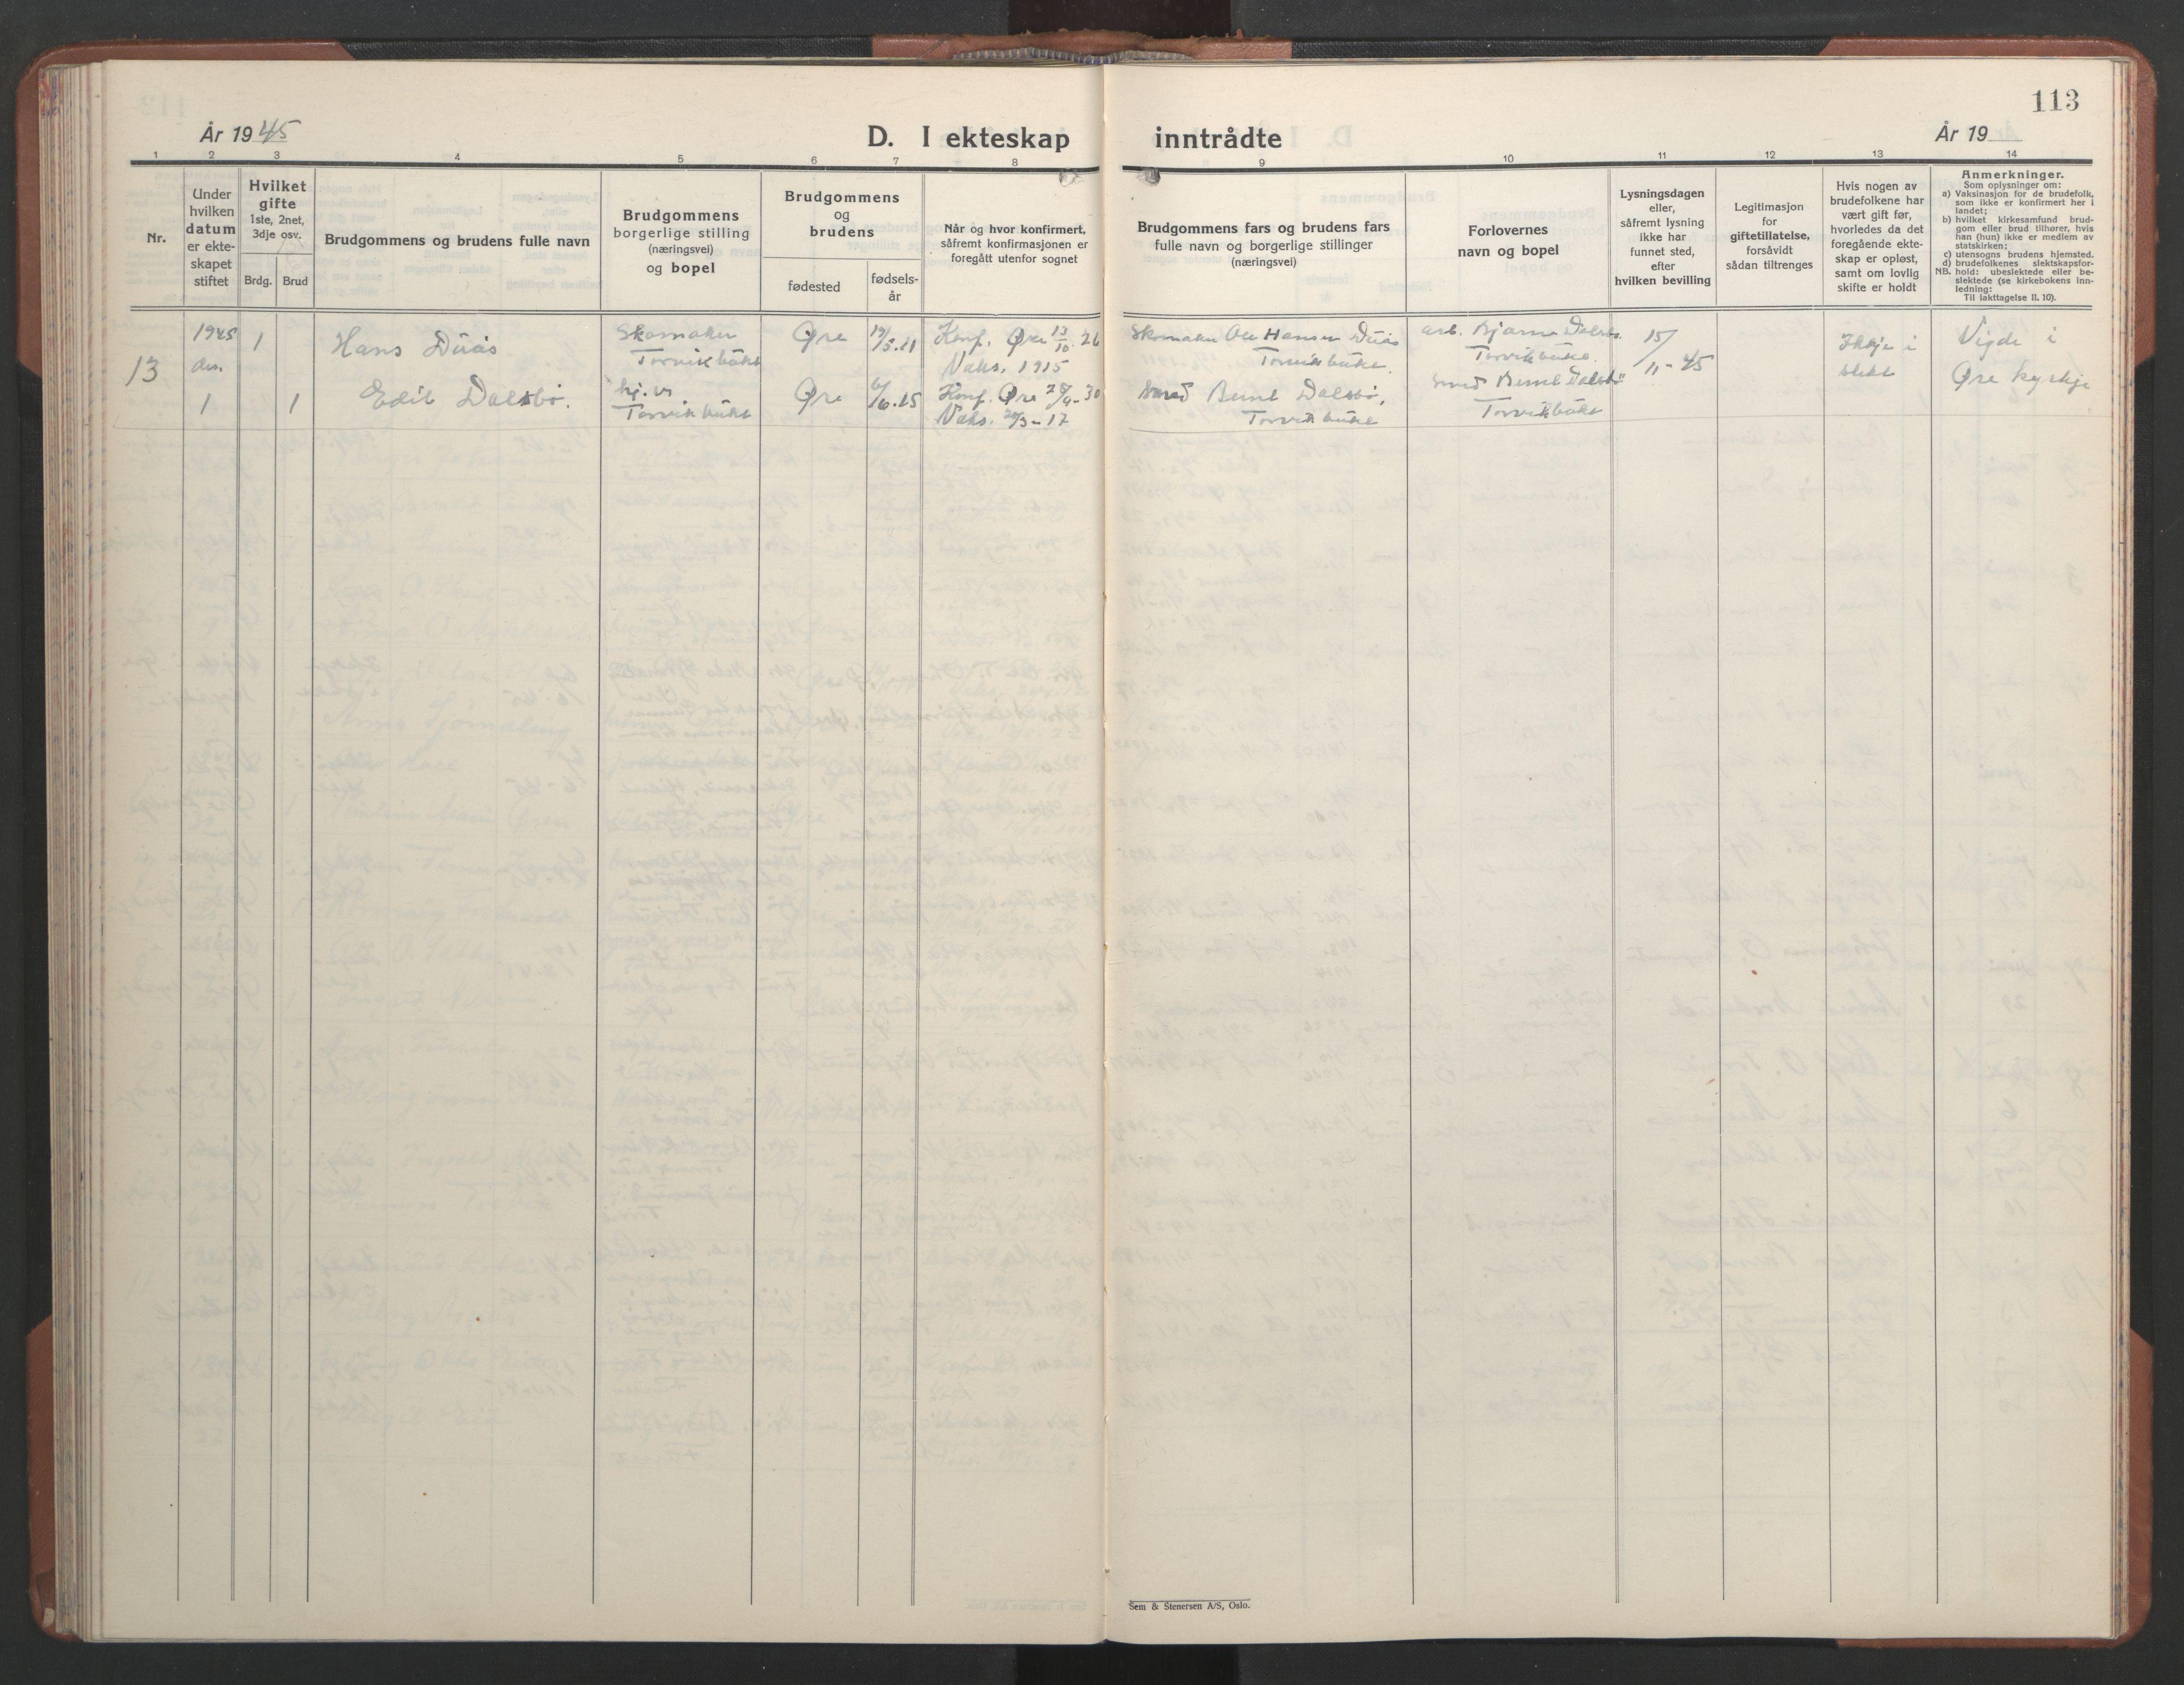 113
År 1945
D. I ekteskap
inntrådte
År 19
1 2 3 4 5 6 7 8 9 10 11 12 13 14
Nr.
Under
hvilken
datum
er ekte-
skapet
stiftet
Hvilket
gifte
1ste, 2net,
3dje osv.
Brdg. Brud
Brudgommens og brudens fulle navn
Brudgommens
borgerlige stilling
(næringsvei)
og bopel
Brudgommens
og
brudens
fødested
fødsels-
år
Når og hvor konfirmert,
såfremt konfirmasjonen er
foregått utenfor sognet
Brudgommens fars og brudens fars
fulle navn og borgerlige stillinger
(næringsvei)
Forlovernes
navn og bopel
Lysningsdagen
eller,
såfremt lysning
ikke har
funnet sted,
efter
hvilken bevilling
Legitimasjon
for
giftetillatelse,
forsåvidt
sådan tiltrenges
Hvis nogen av
brudefolkene har
vært gift før,
hvorledes da det
foregående ekte-
skap er opløst,
samt om lovlig
skifte er holdt
Anmerkninger.
Som oplysninger om:
a) Vaksinasjon for de brudefolk,
som ikke er konfirmert her i
landet;
b) hvilket kirkesamfund brud-
gom eller brud tilhører, hvis
han (hun) ikke er medlem av
statskirken;
c) utensogns brudens hjemsted.
d) brudefolkenes slektskapsfor-
NB. hold: ubeslektede eller be-
slektede (se kirkebokens inn-
ledning:
Til iakttagelse II. 10).
13
1945
des.
1
1
Hans Düås
Skomaker
Torvikbukt
Øre
Konf. Øre 13/10. 26
Vaks. 1915
Skomaker Ole Hansen Düås
Torvikbukt.
arb. Bjarne Dalsbø.
Torvikbukt.
15/11-45
Ikkje i
slekt
Vigde i
Øre kyrkje
1
Edit Dalsbø.
hj. v.
Torvikbukt
Øre
6/6.15
Konf. Øre 28/9-30
Vaks. 20/3-17
Smed Bernt Dalsbø,
Torvikbukt
Smed Bernt Dalsbø
Torvikbukt
Sem & Stenersen A/S, Oslo.